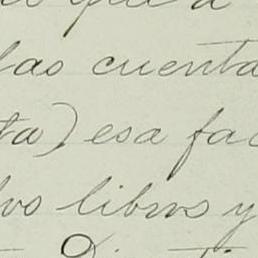 que a
las cuenta
ta) esa fac
los libros y